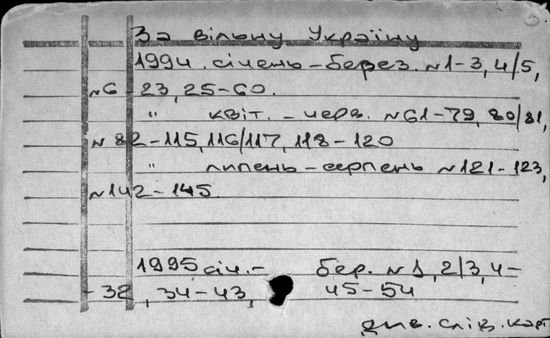 За вільну Україну
1994. січень – берез. №1–3, 4/5,
№6–23, 25–60.
" квіт. – черв. №61–79, 80/81,
№82–115, 116/117, 118–120
" липень – серпень №121–123,
№142–145.
1995 січ. – бер. №1, 2/3, 4–
– 32, 34–43, 45–54
див. слід. карт